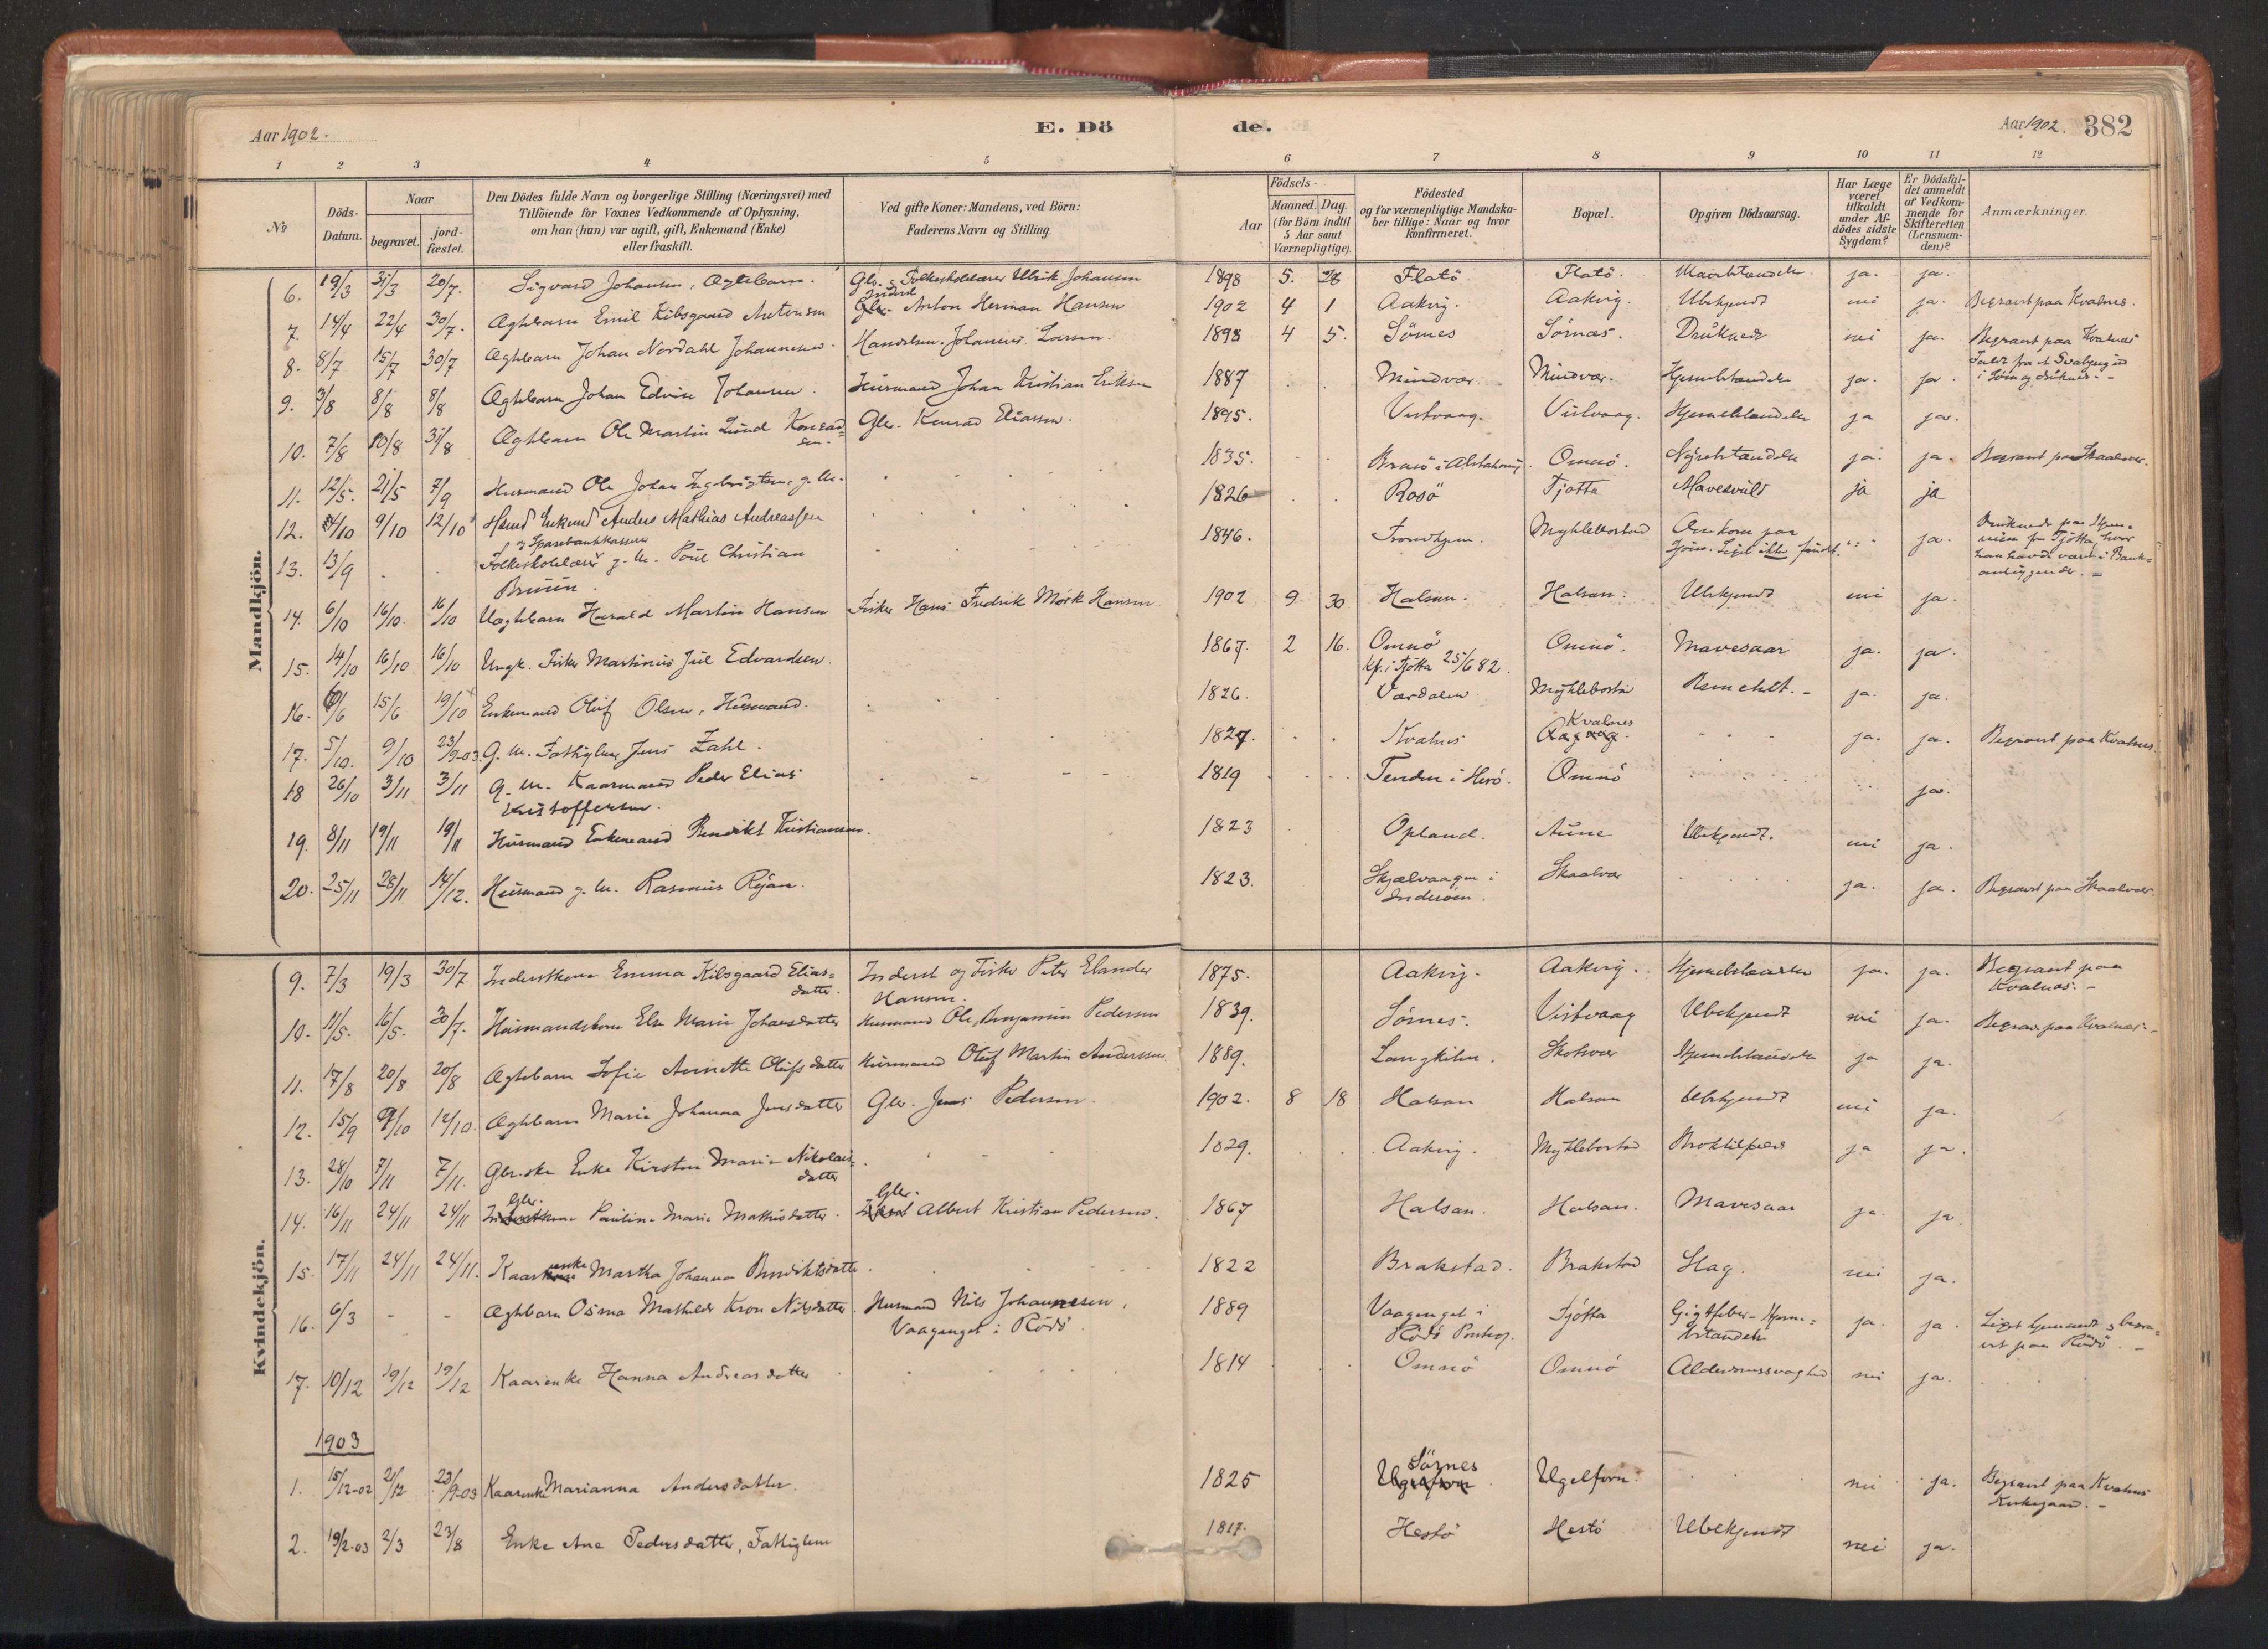 Aar 1902.
E. Dö
de.
Aar 1902. 382
1 2 3 4 5 6 7 8 9 10 11 12
№
Döds-Datum.
Naar
begravet.
jord-fæstet.
Den Dödes fulde Navn og borgerlige Stilling (Næringsvei) med
Tilföiende for Voxnes Vedkommende af Oplysning,
om han (hun) var ugift, gift, Enkemand (Enke)
eller fraskilt.
Ved gifte Koner: Mandens, ved Börn:
Faderens Navn og Stilling.
Födsels-
Aar
Maaned. Dag.
(for Börn indtil
5 Aar samt
Værnepligtige).
Födested
og for værnepligtige Mandska-
ber tillige: Naar og hvor
konfirmeret.
Bopæl.
Opgiven Dödsaarsag.
Har Læge
været
tilkaldt
under Af-
dödes sidste
Sygdom?
Er Dödsfal-
det anmeldt
af Vedkom-
mende for
Skifteretten
(Lensman-
den)?
Anmærkninger.
Mandkjön.
6. 19/3 31/3 20/7. Sigvard Johansen, Ægtebarn. Folkeskolelærer Ulrik Johansen 1898 5. Flatö. Flatö. ja. ja.
7. 14/4 22/4 30/7. Ægtebarn Emil Kibsgaard Antonsen Inderst Anton Herman Hansen 1902 4 1 Aakvig. Aakvig. Ubekjendt nei ja. Begravet paa Kvalnes.
8. 8/7 15/7 30/7 Ægtebarn Johan Nordahl Johannesen. Johannes Larsen. 1898 4 5. Sörnes Sörnæs. Druknede nei ja. Begravet paa Kvalnæs
i Söen og druknede. -
9. 3/8 8/8 8/8 Ægtebarn Johan Edvin Johansen. Husmand Johan Kristian Eriksen 1887 Mindvær. Mindvær. Hjernebetændelse ja. ja.
10. 7/8 10/8 31/8 Ægtebarn Ole Martin Lund Konrad=
sen. Gbr. Konrad Eliassen. 1895. Vistvaag. Vistvaag. Hjernebetændelse ja ja.
11. 12/5. 21/5 7/9 Husmand Ole Johan Ingebrigtsen, g. M. 1835. i Alstahaug. Omnö. Nyrebetændelse ja. ja. Begravet paa Skaalvær.
12. 4/10 9/10 12/10 Husmd Enkemd Anders Mathias Andreassen 1826 Rosö Tjötta Mavesvuld ja ja
13. 13/9 og Sparebankkasserer
Folkeskolelærer g. M. Poul Christian
Bruun. 1846. Trondhjem. Myklebostad Omkom paa
Sjöen. Liget ikke fundet. ja. Druknede paa Hjem=
reisen fra Tjötta, hvor
han havde været i Bank=
14. 6/10 16/10. 16/10 Uægtebarn Harald Martin Hansen Fisker Hans Fredrik Mörk Hansen 1902 9 30. Halsan. Halsan. Ubekjendt nei ja.
15. 14/10 16/10 16/10 Ungk. Fisker Martinus Jul Edvardsen. 1867. 2 16. Omnö
Kf. i Tjötta 25/6 82. Omnö. Mavesaar ja. ja.
16. 15/6 19/10 Enkemand Oluf Olsen, Husmand. 1826. Værdalen Myklebostad ja. ja.
17. 5/10. 9/10 23/9-03. G. M. Fattiglem Jens Zahl. 1827. Kvalnes Kvalnes ja. ja. Begravet paa Kvalnes.
18 26/10 3/11 3/11 G. M. Kaarmand Peder Elias
Kristoffersen. 1819 Tenden i Herö. Omnö ja.
19. 8/11 19/11 19/11 Husmand Enkemand Bendikt Kristiansen. 1823 Opland. Aune Ubekjendt. nei ja.
20. 25/11 28/11 14/12. Husmand g. M. Rasmus Ryan. 1823. Skjelvaagen i
Inderöen. Skaalvær ja. ja. Begravet paa Skaalvær.
Kvindekjön.
9. 7/3 19/3 30/7 Inderstkone Emma Kibsgaard Elias=
datter. Inderst og Fisker Peter Elander
Hansen. 1875. Aakvig. Aakvig. Hjernebetændelse ja. ja. Begravet paa
Kvalnæs. -
10. 11/5. 16/5. 30/7. Husmandskone Else Marie Johansdatter Husmand Ole Benjamin Pedersen 1839. Sörnes. Vistvaag Ubekjendt nei ja. Begrav. paa Kvalnæs. -
11. 17/8 20/8 20/8 Ægtebarn Sofie Annette Olufsdatter Husmand Oluf Martin Anderssen. 1889. Skotsvær Hjernebetændelse ja ja.
12. 15/9 9/10 12/10. Ægtebarn Marie Johanna Jensdatter Gbr. Jens Pedersen. 1902. 8 18 Halsan Halsan Ubekjendt nei ja.
13. 28/10 7/11 7/11. Gbr.ske Enke Kirstin Marie Nikolai=
datter 1829. Aakvig. Myklebostad ja ja.
14. 16/11 24/11 24/11 Gbr.kone Pauline Marie Mathisdatter. Gbr. Albert Kristian Pedersen. 1867 Halsan. Halsan. Mavesaar ja. ja.
15. 17/11 24/11 24/11. Kaarenke Martha Johanna Bendiktsdatter. 1822 Brakstad. Brakstad Slag. nei ja.
16. 6/3 - - Ægtebarn Osma Mathilde Kron Nilsdatter. Husmand Nils Johannesen,
Vaagenget i Rödö. 1889 Vaagenget i
Rödö Prstegj. Tjötta Gigtfeber - Hjerne=
betændelse ja. ja. Liget hjemsendt og begra=
vet paa Rödö. -
17. 10/12 19/12 19/12 Kaarenke Hanna Andreasdatter 1814 Omnö Omnö Alderdomssvaghed nei ja.
1903
1. 15/12-02 21/12 23/9-03 Kaarenke Marianna Andersdatter. 1825 Sörnes Ugelforn nei ja. Begravet paa Kvalnes
Kirkegaard. -
2. 19/2-03 2/3 23/8 Enke Ane Pedersdatter, Fattiglem 1817. Hestö Hestö Ubekjendt nei ja.